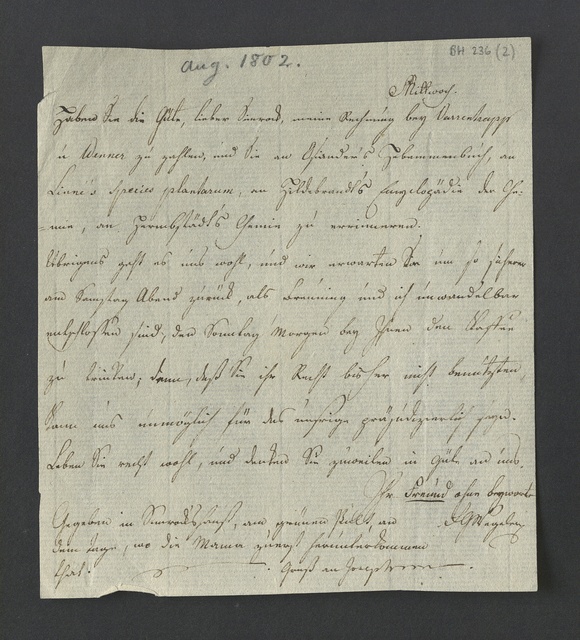 Aug. 1802.
BH 236 (2)
Mittwoch.
Haben Sie die Güte, lieber Simrock, meine Rechnung bey Varrentrapp
u Wenner zu zahlen, und Sie an Osiander's Hebammenbuch, an
Linné's Species plantarum, an Hildebrandt's Encyclopädie der Che-
=mie, an Hermbstädt's Chemie zu erinneren.
Übrigens geht es uns wohl, und wir erwarten Sie um so sicherer
am Samstag Abend zurück, als Breuning und ich unwandelbar
entschlossen sind, den Sonntag Morgen bey Ihnen den Kaffee
zu trinken; denn, daß Sie ihr Recht bisher nicht benutzten
kann uns unmöglich für das unsrige präjudizirlich seyn.
Leben Sie recht wohl, und denken Sie zuweilen in Güte an uns.
Ihr Freund ohne
FGWegeler
Gegeben in am grünen an
dem Tage, wo die Mama zuerst herunterkommen
that. Gruß an